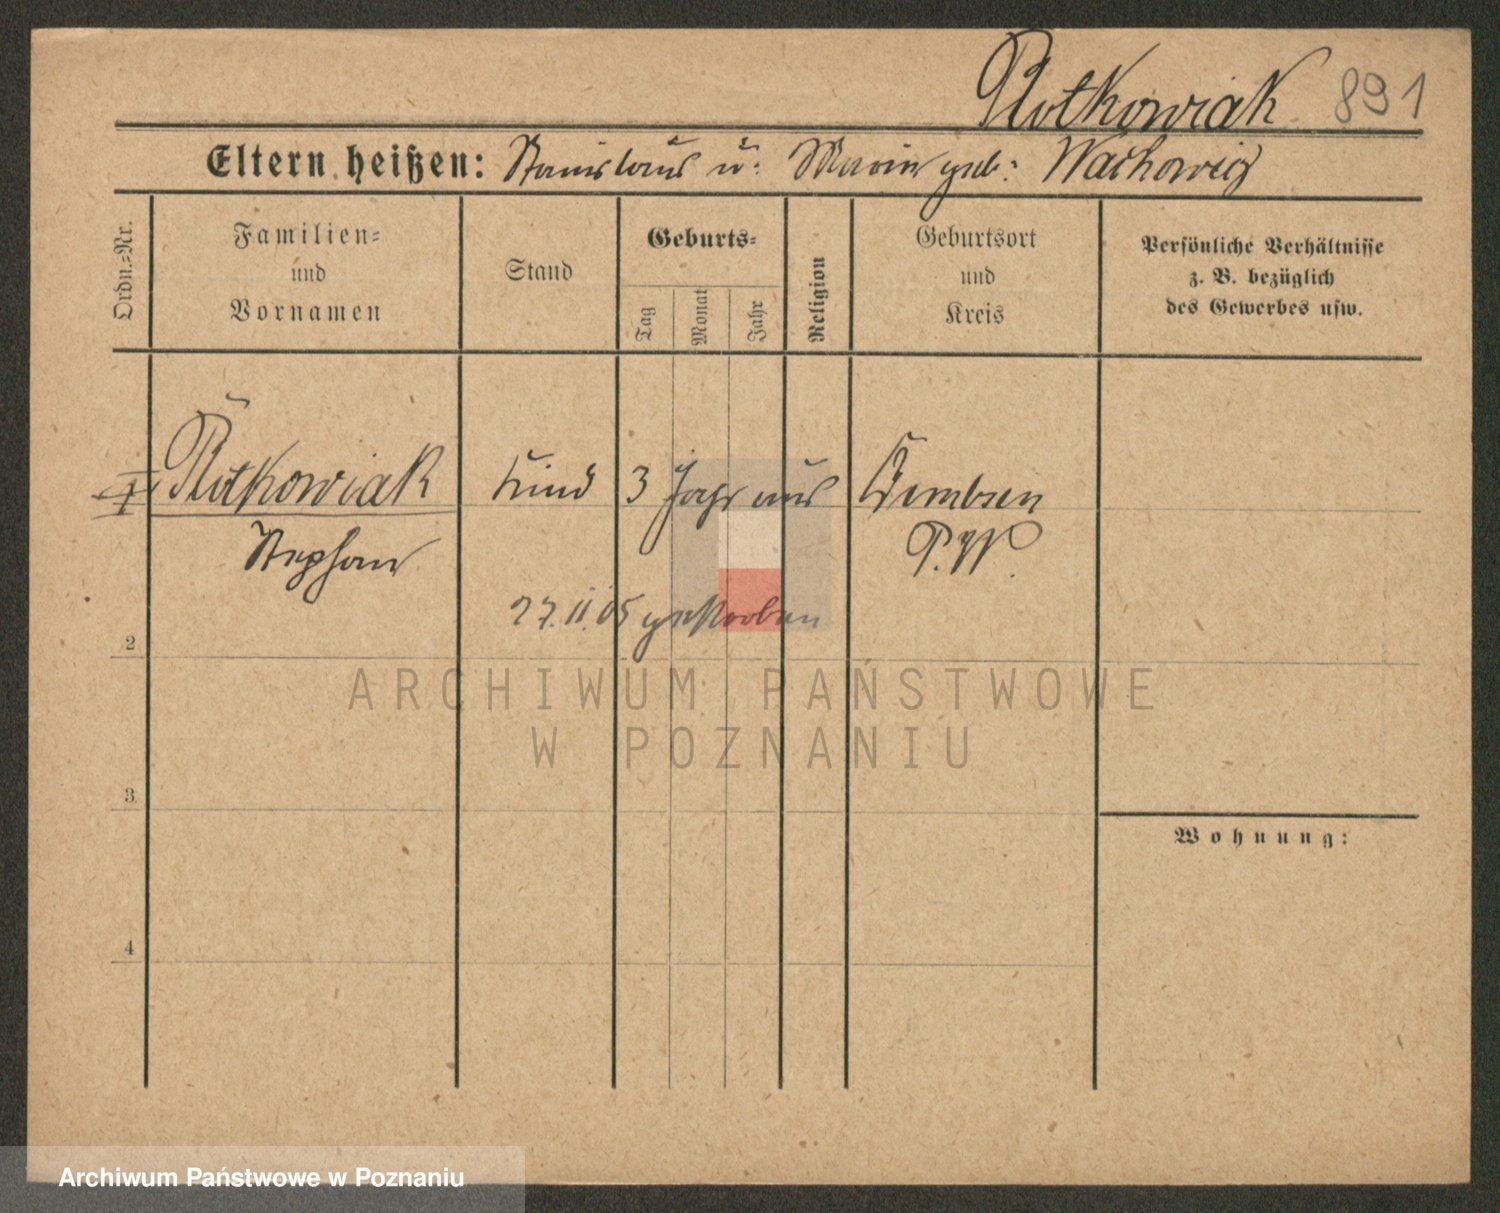 Rotkowiak 891
Eltern heißen: Stanislaus u. Maria geb. Wachowig
Ordn.=Nr.
Familien=
und
Vornamen
Stand
Geburts=
Tag
Monat
Jahr
Religion
Geburtsort
und
Kreis
Persönliche Verhältnisse
z. B. bezüglich
des Gewerbes usw.
Rotkowiak Kind 3 Jahr aus Dembsen
Stephan P. W.
27.11.05 gestorben
2
ARCHIWUM PAŃSTWOWE
W POZNANIU
3
Wohnung:
4
Archiwum Państwowe w Poznaniu